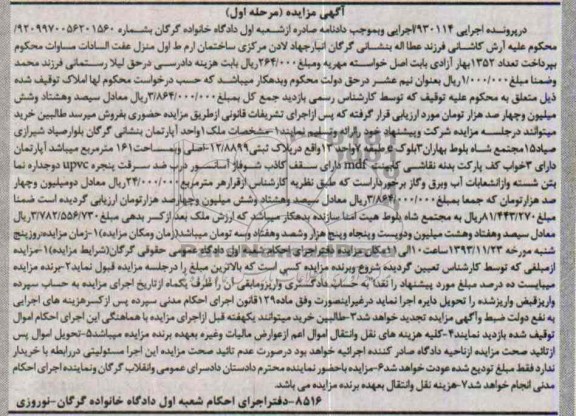 آگهی مزایده (مرحله اول)
درپرونده اجرایی ۹۳۰۱۱۴/اجرایی وبموجب دادنامه صادره ازشعبه اول دادگاه خانواده گرگان بشماره ۹۲۰۹۹۷۰۰۵۶۲۰۱۵۶۰/
محکوم علیه آرش کاشانی فرزند عطا اله بنشانی گرگان انبارجهاد لادن مرکزی ساختمان ارم ط اول منزل عفت السادات مساوات محکوم
بپرداخت تعداد ۱۳۵۲بهار آزادی بابت اصل خواسته مهریه ومبلغ ۲۶۴/۰۰۰ریال بابت هزینه دادرسی درحق لیلا رستمانی فرزند محمد
وضمنا مبلغ ۱/۰۰۰/۰۰۰ریال بعنوان نیم عشر درحق دولت محکوم وبدهکار میباشد که حسب درخواست محکوم لها املاک توقیف شده
ذیل متعلق به محکوم علیه توقیف که توسط کارشناس رسمی بازدید جمع کل بمبلغ ۳/۸۶۴/۰۰۰/۰۰۰ریال معادل سیصد وهشتاد وشش
میلیون وچهار صد هزار تومان مورد ارزیابی قرار گرفته که پس ازاجرای تشریفات قانونی ازطریق مزایده حضوری بفروش میرسد طالبین خرید
میتوانند درجلسه مزایده شرکت وپیشنهاد خود را به تسلیم نمایند:۱-مشخصات ملک۱واحد آپارتمان بنشانی گرگان بلوارصیاد شیرازی
صیاد۱۵مجتمع شاه بلوط بهاران۳بلوک c طبقه ۷واحد ۱۲واقع درپلاک ثبتی۱۲/۸۸۹۹-اصلی وبمساحت۱۶۱ مترمربع میباشد آپارتمان
دارای ۳خواب کف پارکت بدنه نقاشی کابینت mdf دارای سقف کاذب شوفاژ آسانسور درب ضد سرقت پنجره upvc دوجداره نما
بتن شسته وازانشعابات آب وبرق وگاز برخورداراست که طبق نظریه کارشناس ازقرارهر مترمربع ۲۴/۰۰۰/۰۰۰ریال معادل دومیلیون وچهار
صد هزارتومان که جمعا بمبلغ۳/۸۶۴/۰۰۰/۰۰۰ریال معادل سیصد وهشتاد وشش میلیون وچهارصد هزارتومان ارزیابی گردیده است ضمنا
مبلغ ۸۱/۴۴۳/۲۷۰ریال به مجتمع شاه بلوط هیت امنا سازنده بدهکار میباشد که ارزش ملک بعد ازکسر بدهی مبلغ ۳/۷۸۲/۵۵۶/۷۳۰ریال
معادل سیصد وهفتاد وهشت میلیون ودویست وپنجاه وپنج هزار وششصد وهفتاد وسه تومان میباشد(زمان ومکان مزایده)۱-زمان مزایده:روزپنج
شنبه مورخه ۱۳۹۳/۱۱/۲۳ ساعت۱۰الی۱۱مکان مزایده دفتراجرای احکام شعبه اول دادگاه عمومی حقوقی گرگان(شرایط مزایده)۱-مزایده
ازمبلغی که توسط کارشناس تعیین گردیده شروع وبرنده مزایده کسی است که بالاترین مبلغ را درجلسه مزایده قبول نماید۲-برنده مزایده
میبایست ده درصد مبلغ مورد پیشنهاد را نقدا به حساب دادگستری واریزومابقی آن را ظرف یکماه ازتاریخ اجرای مزایده به حساب سپرده
واریزقبض واریزشده را تحویل دایره اجرا نماید درغیراینصورت وفق ماده۱۲۹قانون اجرای احکام مدنی سپرده پس ازکسرهزینه های اجرایی
به نفع دولت ضبط وآگهی مزایده تجدید خواهد شد۳-طالبین خرید میتوانند یکهفته قبل ازاجرای مزایده با هماهنگی این اجرای احکام اموال
توقیف شده بازدید نمایند۴-کلیه هزینه های نقل وانتقال اموال اعم ازعوارض مالیات وغیره بعهده برنده مزایده میباشد۵-تحویل اموال پس
ازتائید صحت مزایده ازناحیه دادگاه صادر کننده اجرائیه خواهد بود درصورت عدم تائید صحت مزایده این اجرا مسئولیتی دررابطه با خریدار
ندارد فقط مبلغ تودیع شده عودت خواهد شد۶-مزایده باحضور نماینده محترم دادستان دادسرای عمومی وانقلاب گرگان ونماینده اجرای احکام
مدنی انجام خواهد شد۷-هزینه نقل وانتقال بعهده برنده مزایده می باشد.
۸۵۱۶-دفتراجرای احکام شعبه اول دادگاه خانواده گرگان-نوروزی